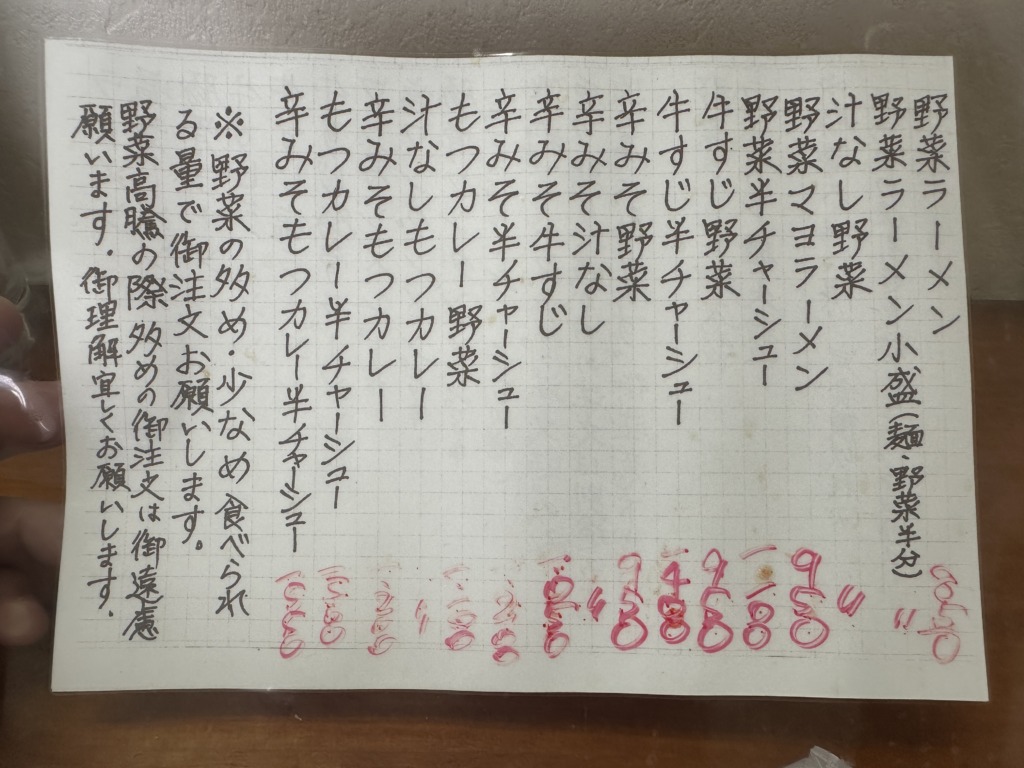 野菜ラーメン 850
野菜ラーメン小盛(麺・野菜半分) 〃
汁なし野菜 〃
野菜マヨラーメン 950
野菜半チャーシュー
牛すじ野菜 950
牛すじ半チャーシュー
辛みそ野菜 950
辛みそ汁なし 〃
辛みそ牛すじ
辛みそ半チャーシュー
もつカレー 野菜
汁なしもつカレー 〃
辛みそもつカレー
もつカレー半チャーシュー
辛みそもつカレー半チャーシュー
※野菜の多め・少なめ食べられ
る量で御注文お願いします。
野菜高騰の際多めの御注文は御遠慮
願います.御理解宜しくお願いします.